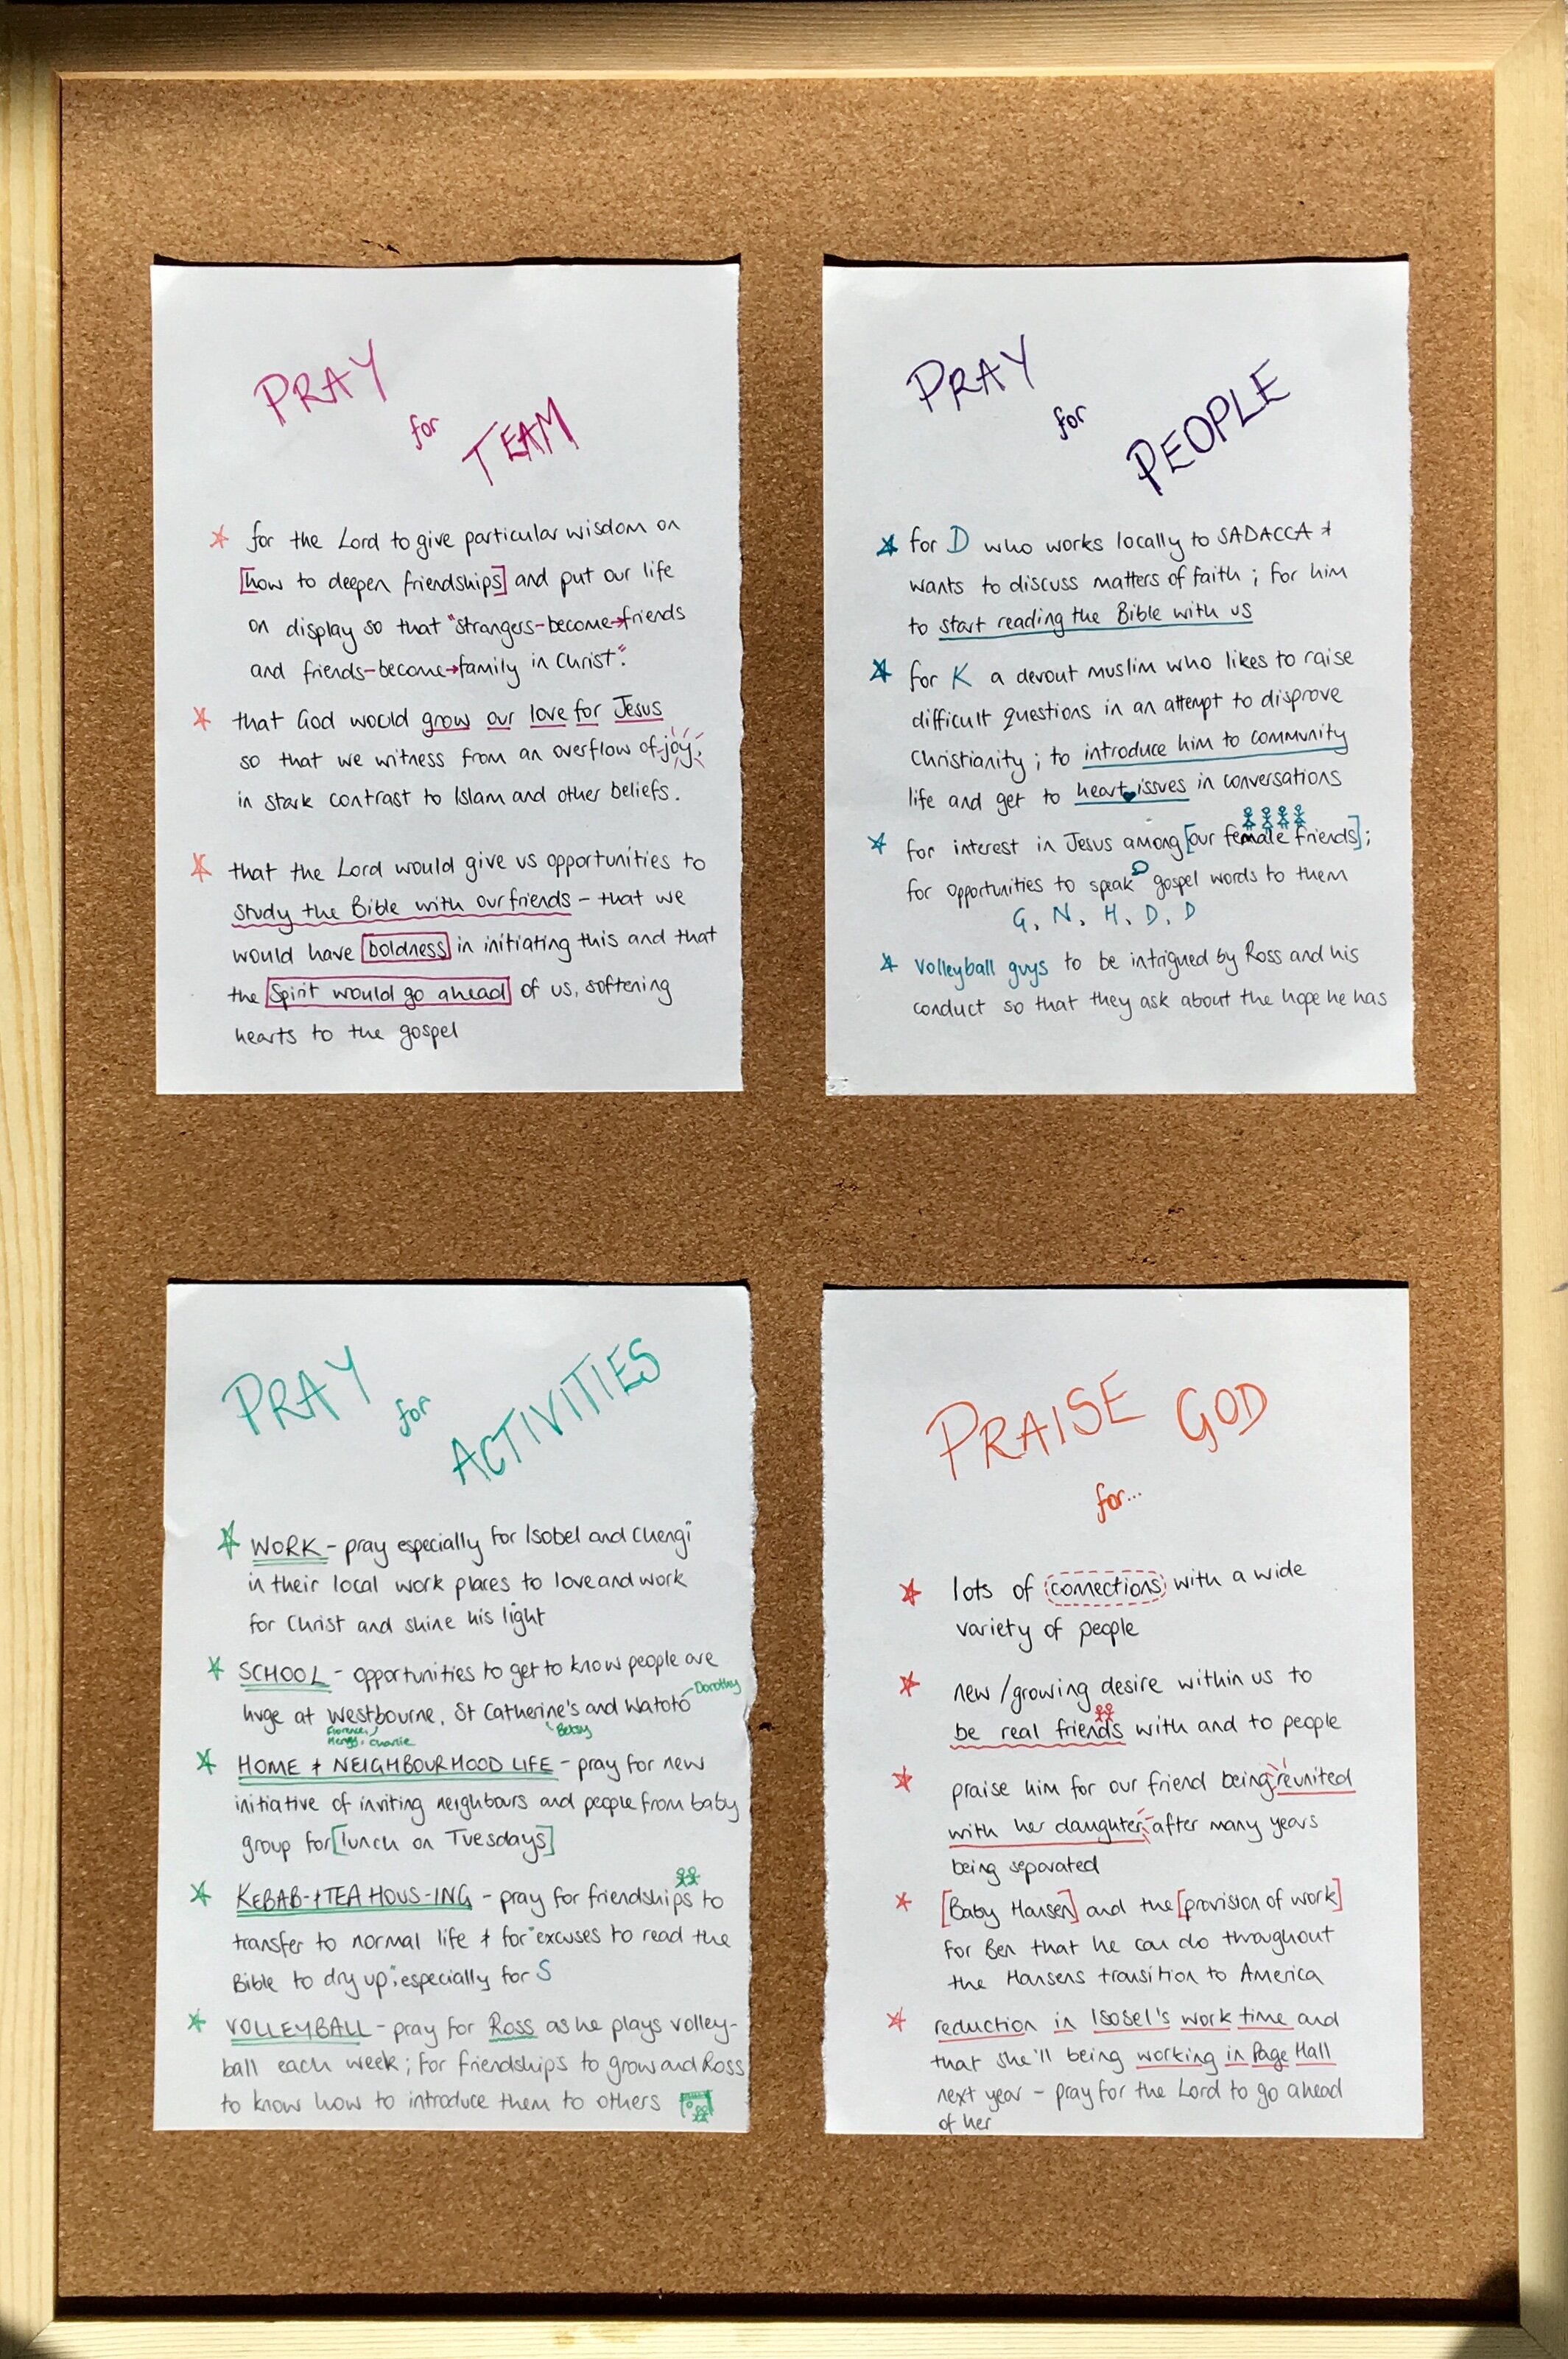 PRAY
for
TEAM
for the Lord to give particular wisdom on
[how to deepen friendships] and put our life
on display so that "strangers-become→friends
and friends-become→family in Christ".
that God would grow our love for Jesus
so that we witness from an overflow of joy,
in stark contrast to Islam and other beliefs.
that the Lord would give us opportunities to
study the Bible with our friends - that we
would have boldness in initiating this and that
the Spirit would go ahead of us, softening
hearts to the gospel
PRAY
for
PEOPLE
for D who works locally to SADACCA +
wants to discuss matters of faith; for him
to start reading the Bible with us
for K a devout muslim who likes to raise
difficult questions in an attempt to disprove
Christianity; to introduce him to community
life and get to heart issues in conversations
for interest in Jesus among [our female friends];
for opportunities to speak gospel words to them
G, N, H, D, D
volleyball guys to be intrigued by Ross and his
conduct so that they ask about the hope he has
PRAY
for
ACTIVITIES
WORK - pray especially for Isobel and Chengi
in their local work places to love and work
for Christ and shine his light
SCHOOL - opportunities to get to know people are
huge at Westbourne, St Catherine's and Watoto
Dorothy
Florence,
Betsy
Henry, Charlie
HOME + NEIGHBOURHOOD LIFE - pray for new
initiative of inviting neighbours and people from baby
group for [lunch on Tuesdays]
KEBAB-+TEA HOUS-ING - pray for friendships to
transfer to normal life + for "excuses to read the
Bible to dry up", especially for S
VOLLEYBALL - pray for Ross as he plays volley-
ball each week; for friendships to grow and Ross
to know how to introduce them to others
PRAISE GOD
for...
lots of connections with a wide
variety of people
new/growing desire within us to
be real friends with and to people
praise him for our friend being reunited
with her daughter after many years
being separated
[Baby Hansen] and the [provision of work]
for Ben that he can do throughout
the Hansens transition to America
reduction in Isobel's work time and
that she'll being working in Page Hall
next year - pray for the Lord to go ahead
of her